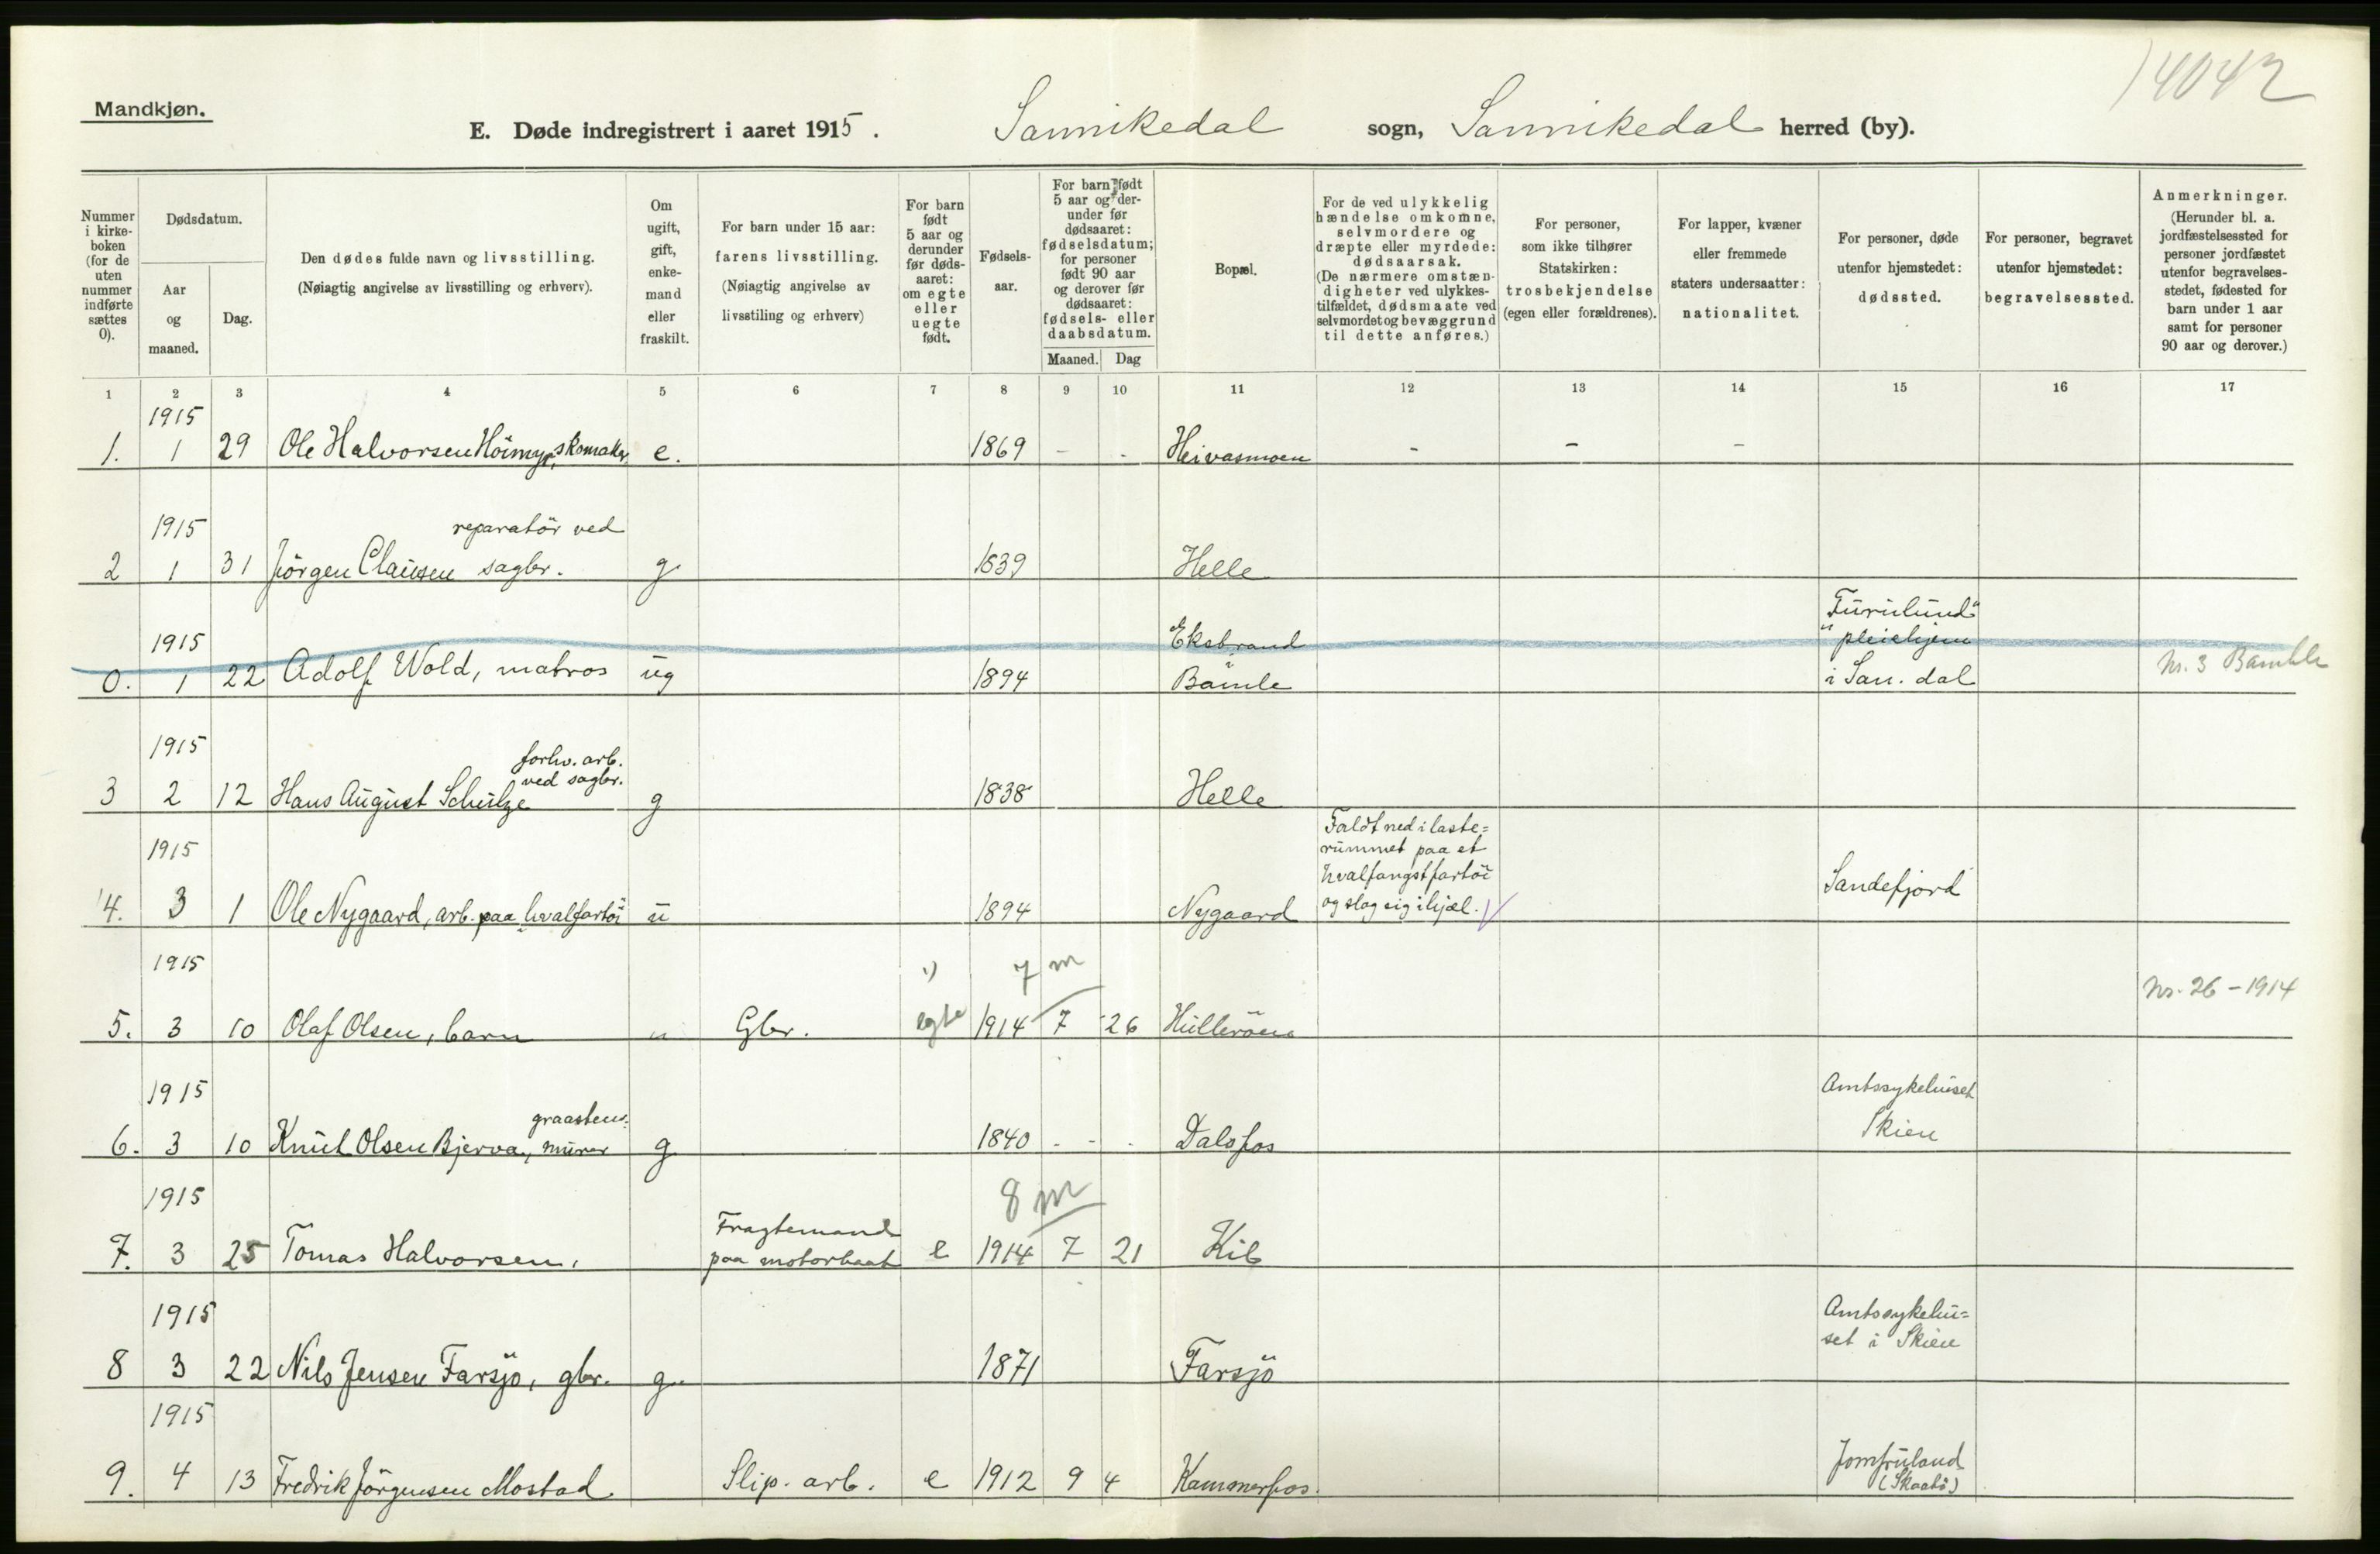 14042
Mandkjøn.
E. Døde indregistrert i aaret 1915. Sannikedal sogn, Sannikedal herred (by).
Nummer i kirke-boken (for de uten nummer indførte sættes 0).
Dødsdatum.
Aar og maaned.
Dag.
Den dødes fulde navn og livsstilling. (Nøiagtig angivelse av livsstilling og erhverv).
Om ugift, gift, enke-mand eller fraskilt.
For barn under 15 aar: farens livsstilling. (Nøiagtig angivelse av livsstiling og erhverv)
For barn født 5 aar og derunder før døds-aaret: om egte eller uegte født.
Fødsels-aar.
For barn født 5 aar og der-under før dødsaaret: fødselsdatum; for personer født 90 aar og derover før dødsaaret: fødsels- eller daabsdatum.
Maaned. Dag
Bopæl.
For de ved ulykkelig hændelse omkomne, selvmordere og dræpte eller myrdede: dødsaarsak. (De nærmere omstæn-digheter ved ulykkes-tilfældet, dødsmaate ved selvmordet og bevæggrund til dette anføres.)
For personer, som ikke tilhører Statskirken: trosbekjendelse (egen eller forældrenes).
For lapper, kvæner eller fremmede staters undersaatter: nationalitet.
For personer, døde utenfor hjemstedet: dødssted.
For personer, begravet utenfor hjemstedet: begravelsessted.
Anmerkninger. (Herunder bl. a. jordfæstelsessted for personer jordfæstet utenfor begravelses-stedet, fødested for barn under 1 aar samt for personer 90 aar og derover.)
1 2 3 4 5 6 7 8 9 10 11 12 13 14 15 16 17
1915
1. 1 29 Ole Halvorsen Höimyr, skomaker. e. 1869 - . Heivasmoen - - -
1915 reparatör ved
2 1 31 Jörgen Clausen sagbr. g. 1839 Helle
1915 Eksbrand "Furulund" pleiehjem
0. 1 22 Adolf Wold, matros ug 1894 i Bamle i San. dal Nr. 3 Bamble
1915 forhv. arb. ved sagbr.
3 2 12 Hans August Schulze g 1838 Helle
1915 Faldt ned i laste=
rummet paa et
hvalfangstfartöi
4. 3 1 Ole Nygaard, arb. paa hvalfartöi u 1894 Nygaard og slog sig ihjæl. Sandefjord
1915 1) 7 m
5. 3 10 Olaf Olsen, barn u Gbr. egte 1914 7 26 Hulleröen Nr. 26 - 1914
1915 graastens. Amtssykehuset
6. 3 10 Knut Olsen Bjerva, murer g 1840 - - . Dalsfos Skien
1915 8 m
Fragtemand
7. 3 25 Tomas Halvorsen, paa motorbaat e 1914 7 21 Kil
1915 Amtssykehu=
8 3 22 Nils Jensen Farsjö, gbr. g. 1871 Farsjö set i Skien
1915 Jomfruland
9. 4 13 Fredrik Jörgensen Mostad Slip. arb. e 1912 9 4 Kammerfos. (Skaatö)